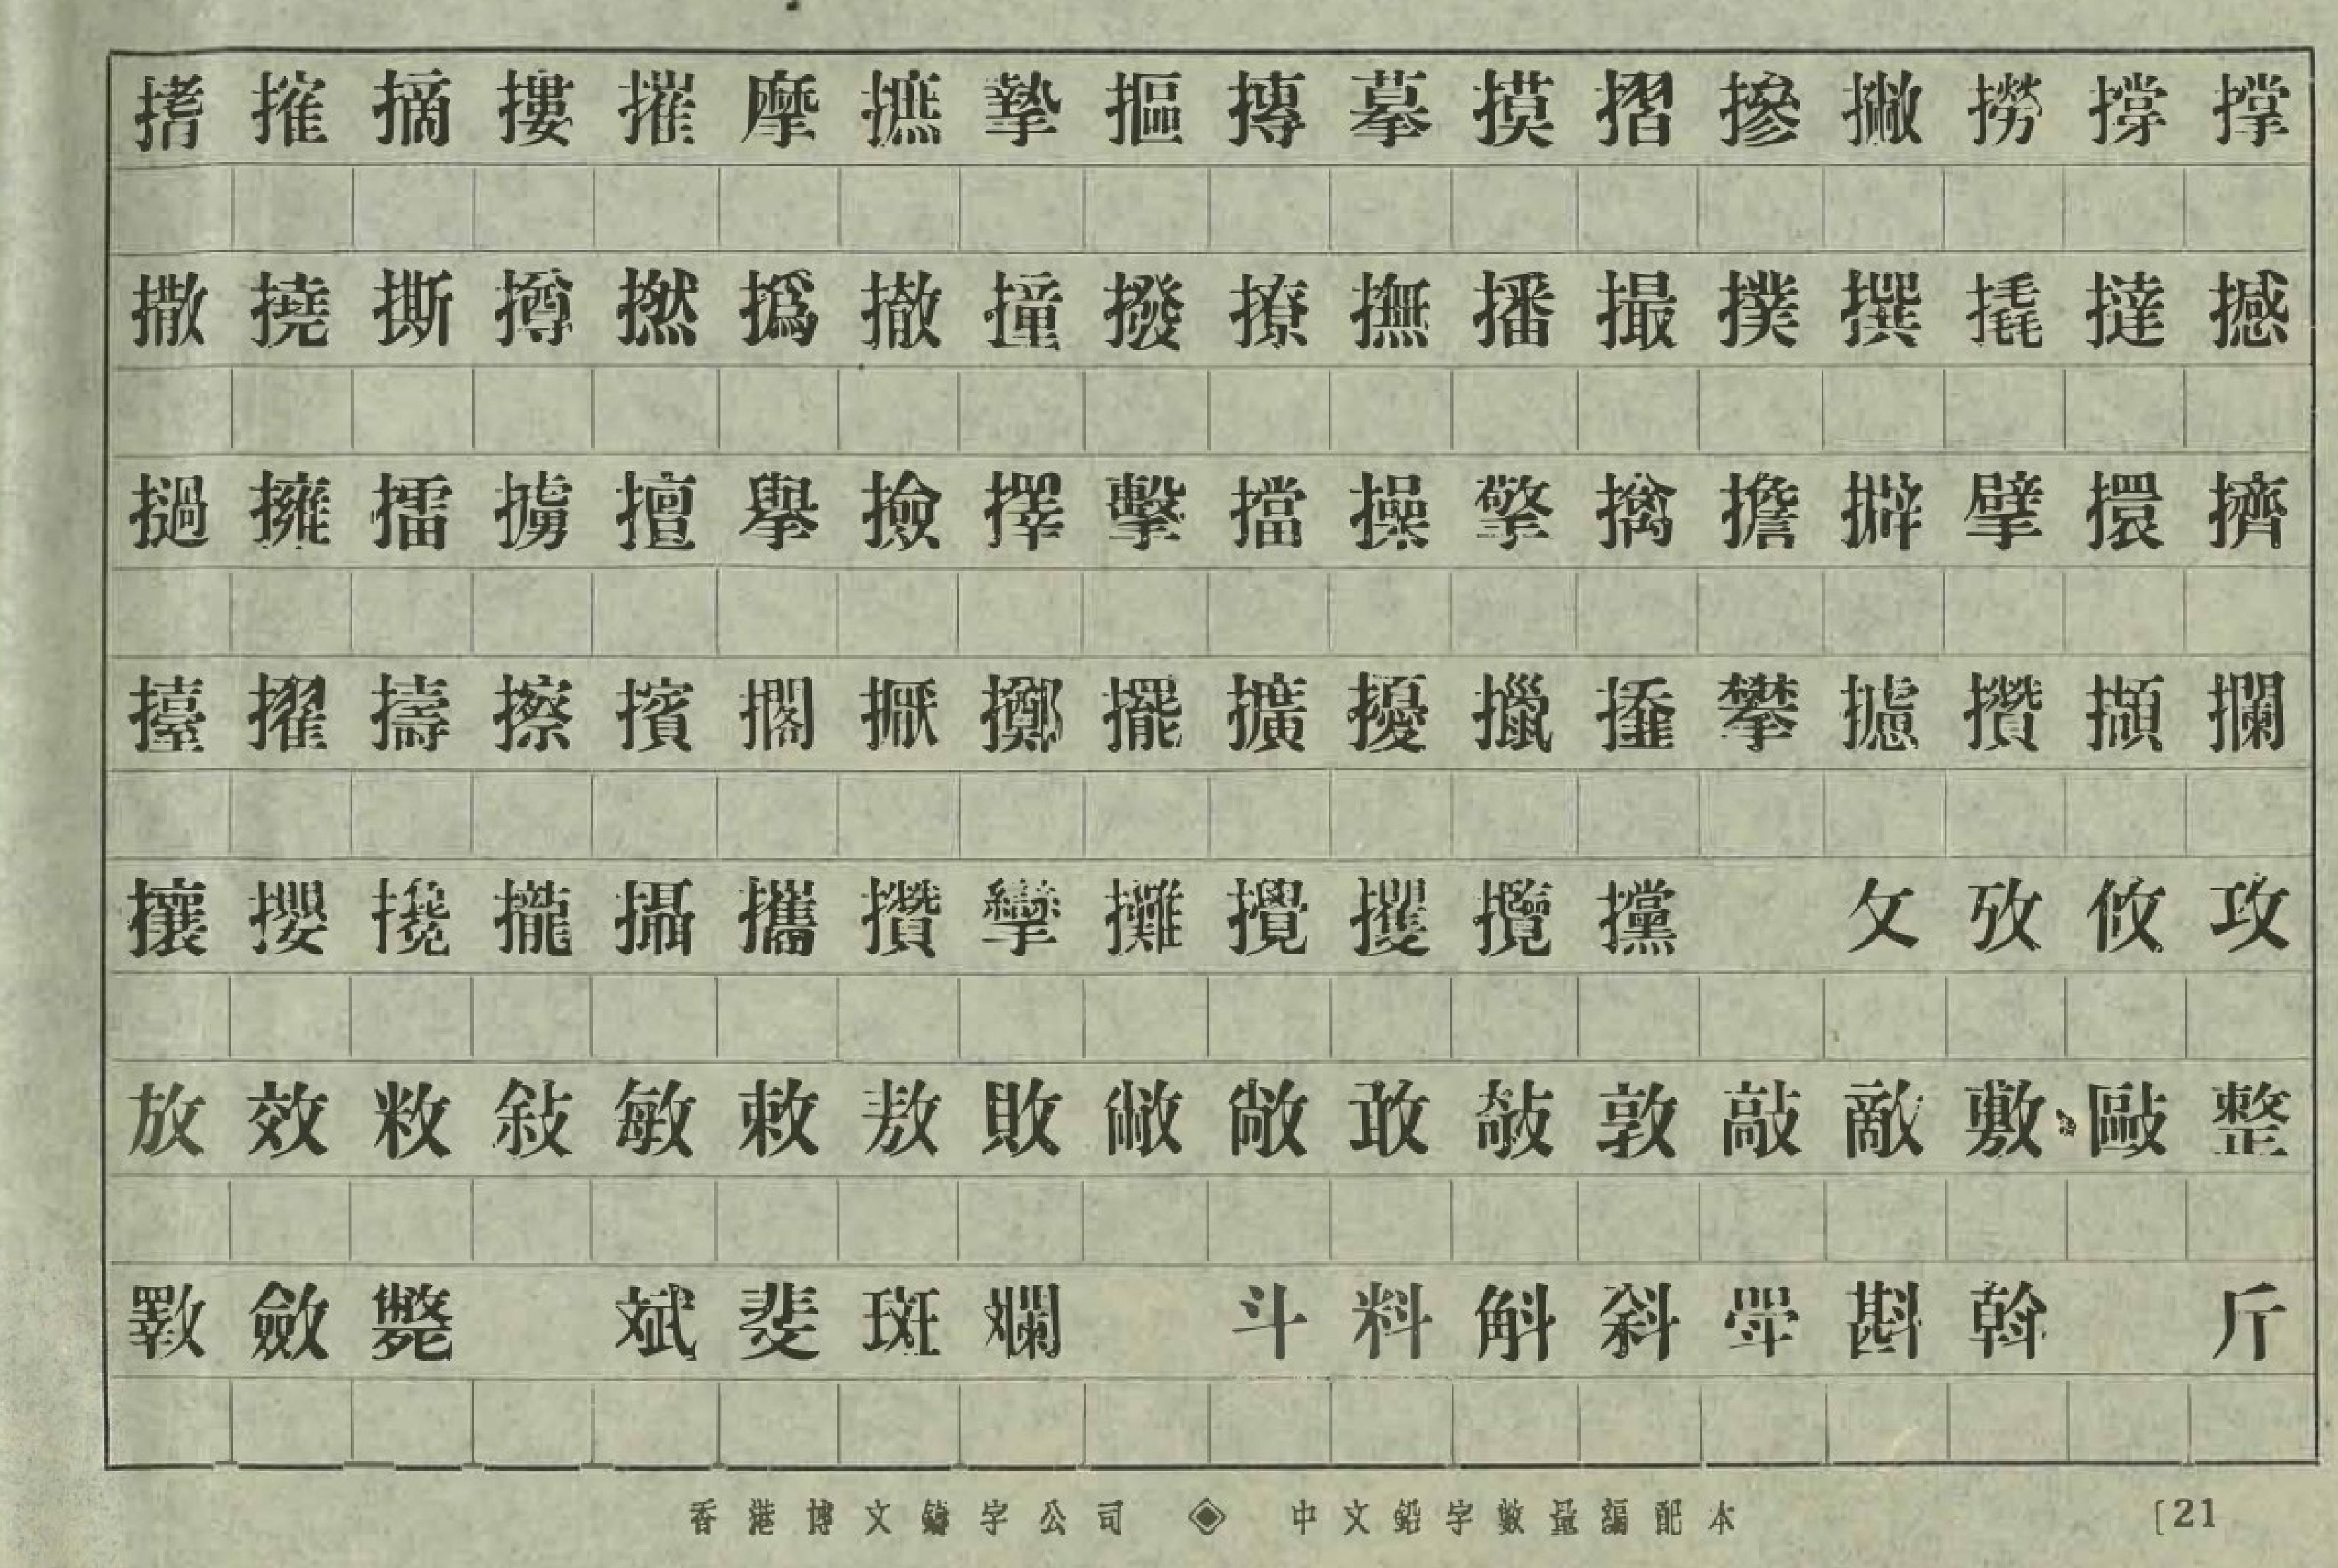 搘搉摘摟摧摩摭摯摳摶摹摸摺摻撇撈撐撑
撒撓撕撙撚撝撤撞撥撩撫播撮撲撰撬撻撼
撾擁擂擄擅舉撿擇擊擋操擎擒擔擗擘擐擠
擡擢擣擦擯擱擫擲擺擴擾擸攀攄攢擷攔
攘攖攙攏攝攜攢攣攤攪攫攬攩 攵攷攸攻
放效敉敍敏敕敖敗敝敞敢敧敦敲敵敷敺整
斁斂斃 斌斐斑斕 斗料斛斜斝斟斡 斤
香港博文鑄字公司 ◈ 中文鉛字數量編配本 [21